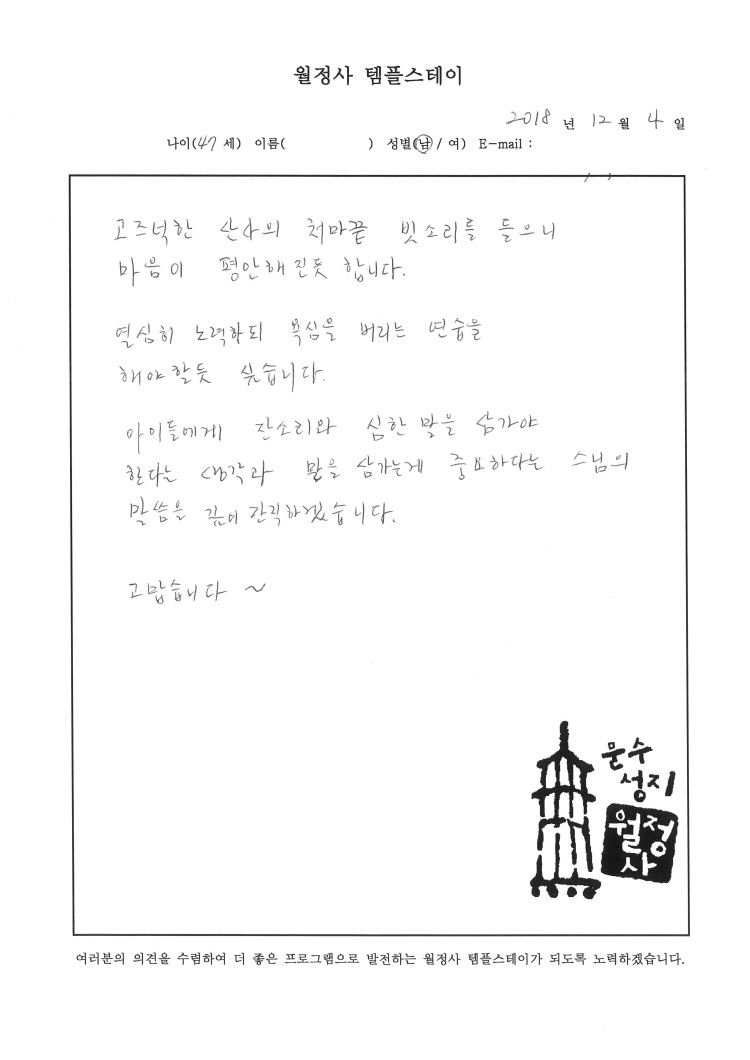 월정사 템플스테이
2018 년 12 월 4 일
나이(47 세) 이름( ) 성별(남 / 여) E-mail :
고즈넉한 산사의 처마끝 빗소리를 들으니
마음이 평안해진듯 합니다.
열심히 노력하되 욕심을 버리는 연습을
해야할듯 싶습니다.
아이들에게 잔소리와 심한 말을 삼가야
한다는 생각과 말을 삼가는게 중요하다는 스님의
말씀을 깊이 간직하겠습니다.
고맙습니다 ~
문수
성지
월정
사
여러분의 의견을 수렴하여 더 좋은 프로그램으로 발전하는 월정사 템플스테이가 되도록 노력하겠습니다.